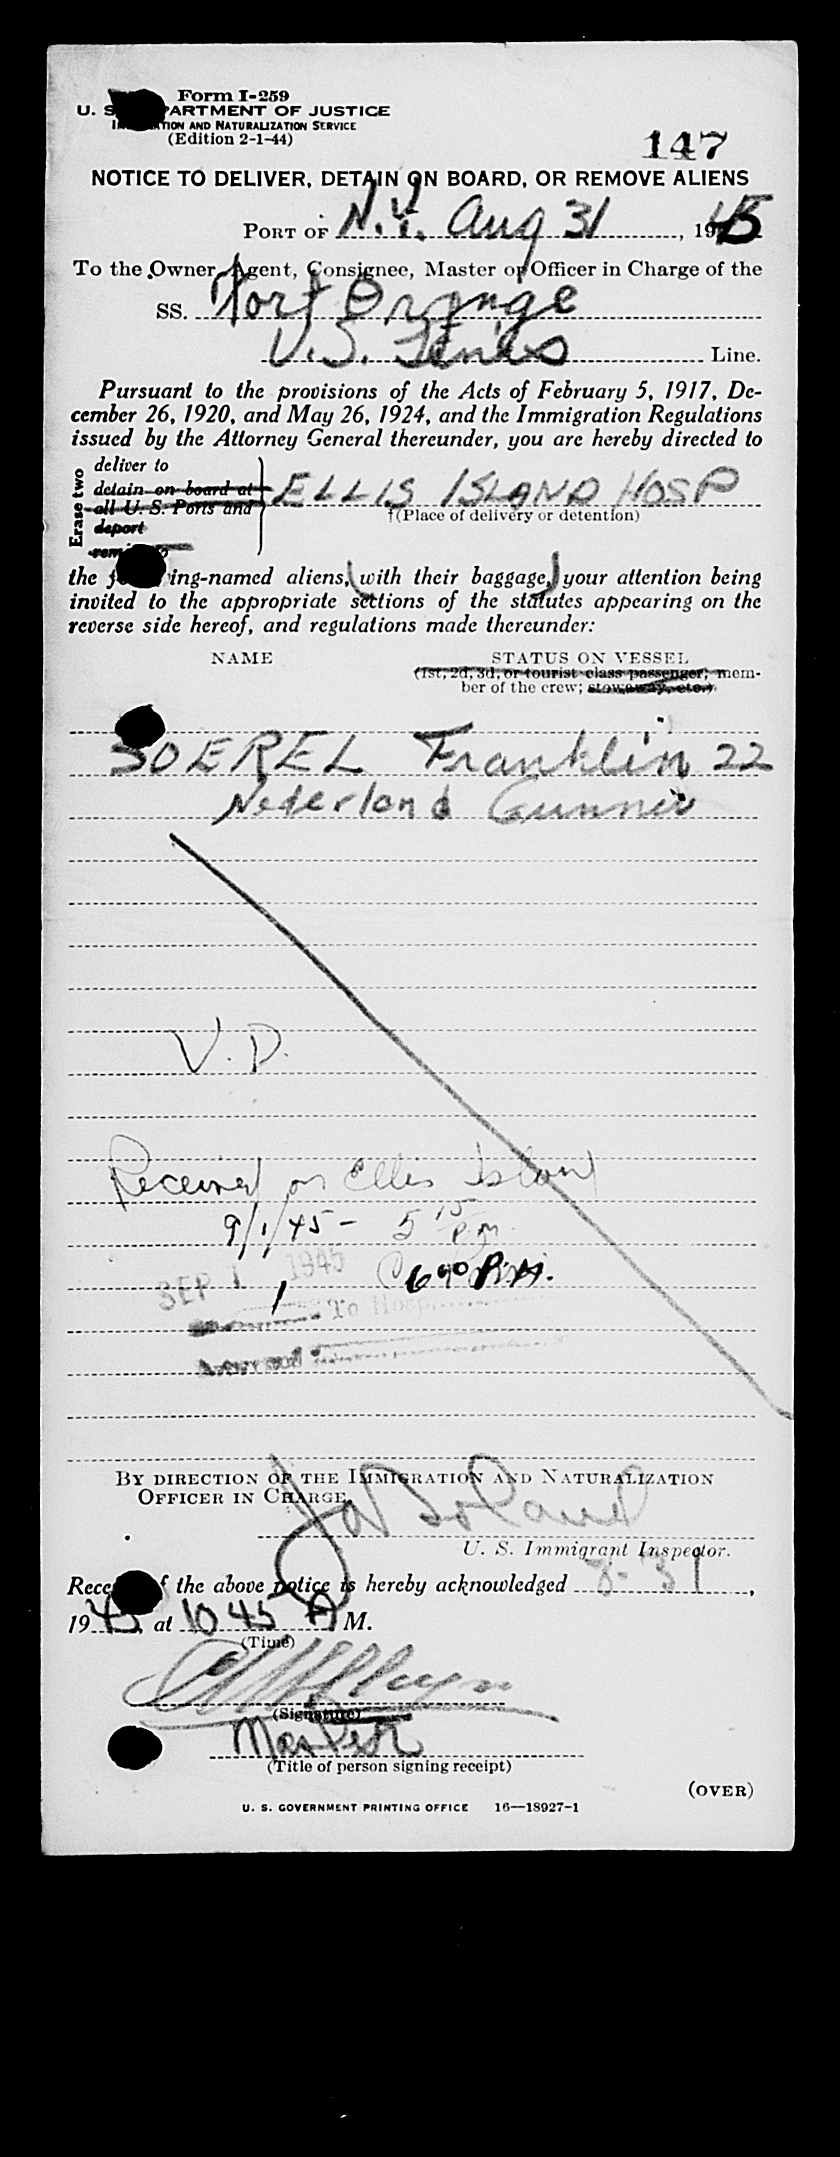 Form I-259
U. S. DEPARTMENT OF JUSTICE
IMMIGRATION AND NATURALIZATION SERVICE
(Edition 2-1-44)
147
NOTICE TO DELIVER, DETAIN ON BOARD, OR REMOVE ALIENS
PORT OF N.Y. Aug 31, 1945
To the Owner, Agent, Consignee, Master or Officer in Charge of the
SS. Fort Orange
U.S. Lines Line.
Pursuant to the provisions of the Acts of February 5, 1917, De-
cember 26, 1920, and May 26, 1924, and the Immigration Regulations
issued by the Attorney General thereunder, you are hereby directed to
Erase two
deliver to
detain on board at
all U. S. Ports and
deport
remove to
ELLIS ISLAND HOSP
†(Place of delivery or detention)
the following-named aliens, (with their baggage,) your attention being
invited to the appropriate sections of the statutes appearing on the
reverse side hereof, and regulations made thereunder:
NAME STATUS ON VESSEL
(1st, 2d, 3d, or tourist class passenger; mem-
ber of the crew; stowaway, etc.)
SOEREL Franklin 22
Nederland Gunner
V.D.
Received on Ellis Island
9/1/45 - 5 15 P.M.
SEP 1 1945 6 00 P.M.
1 To Hosp.
BY DIRECTION OF THE IMMIGRATION AND NATURALIZATION
OFFICER IN CHARGE,
U. S. Immigrant Inspector.
Receipt of the above notice is hereby acknowledged 8-31,
1945 at 10 45 A M.
(Time)
(Signature)
Master
(Title of person signing receipt)
(OVER)
U. S. GOVERNMENT PRINTING OFFICE 16—18927-1